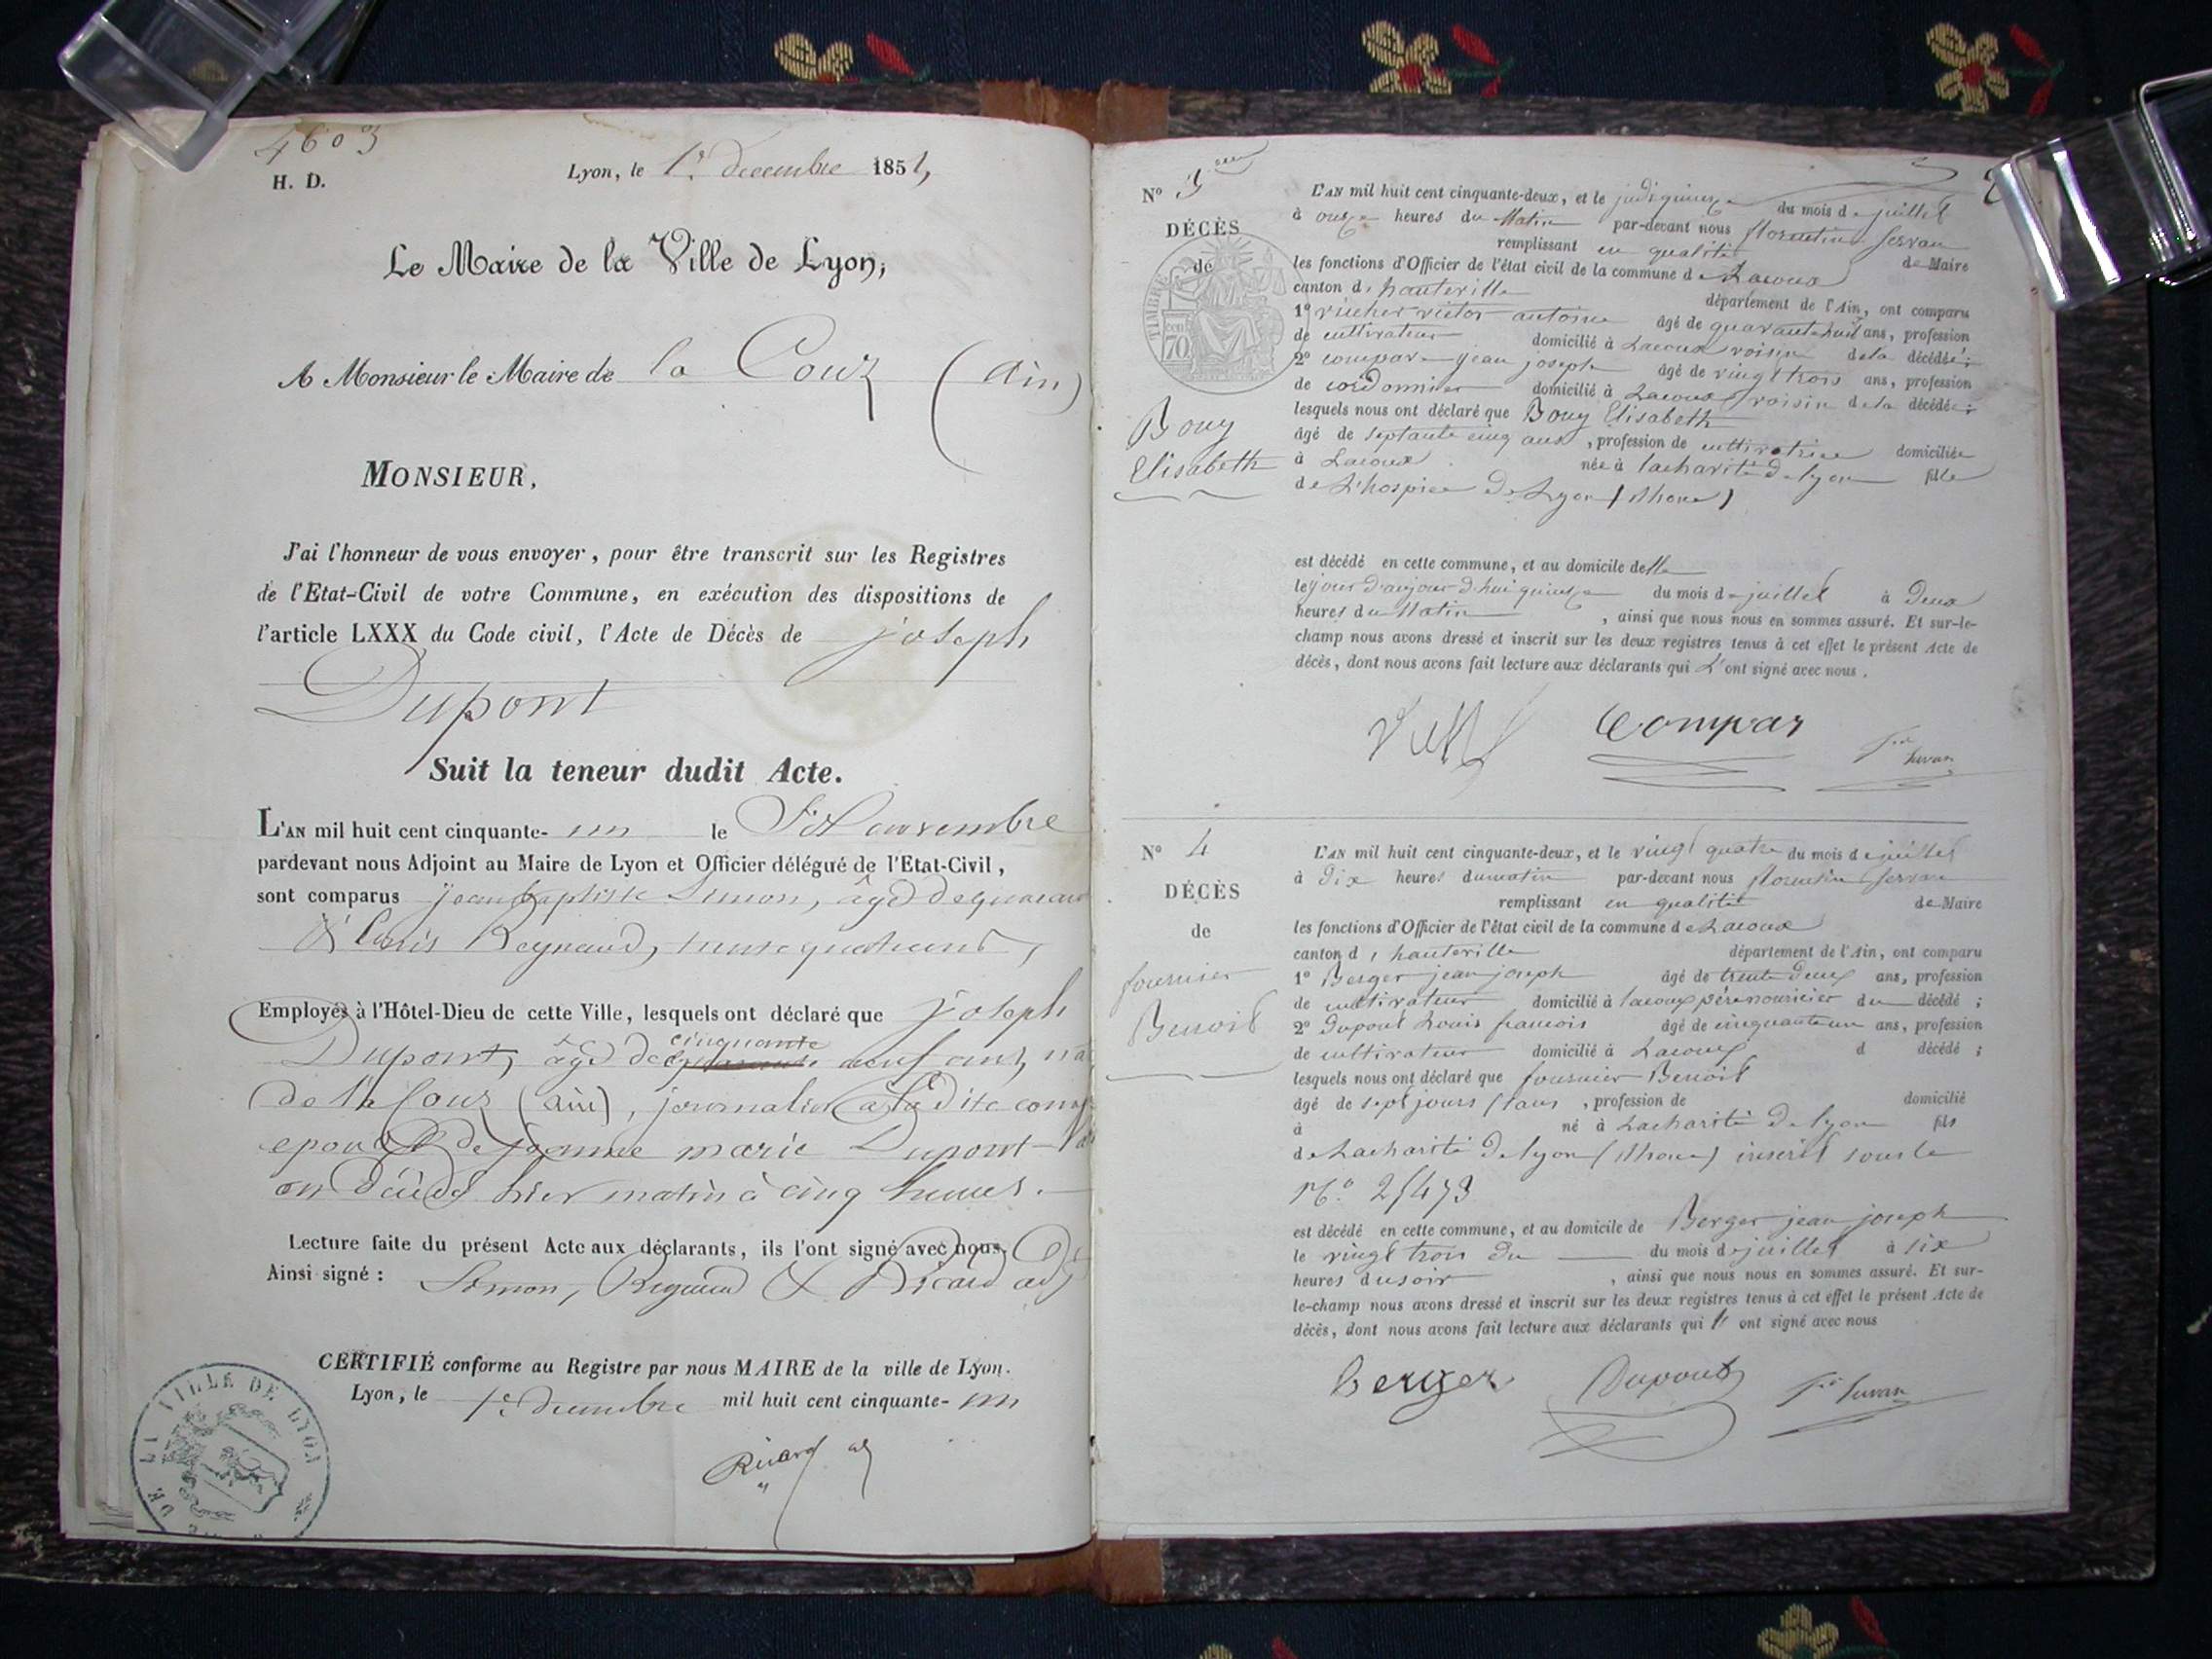 4603
H. D.
Lyon, le 1er decembre 1851,
Le Maire de la Ville de Lyon,
A Monsieur le Maire de la Couz (Ain)
MONSIEUR,
J'ai l'honneur de vous envoyer, pour être transcrit sur les Registres
de l'Etat-Civil de votre Commune, en exécution des dispositions de
l'article LXXX du Code civil, l'Acte de Décès de joseph
Dupont
Suit la teneur dudit Acte.
L'AN mil huit cent cinquante- un le
pardevant nous Adjoint au Maire de Lyon et Officier délégué de l'Etat-Civil,
sont comparus jean baptiste Simon, âgé de
& Louis Reynaud, trente quatre ans,
Employés à l'Hôtel-Dieu de cette Ville, lesquels ont déclaré que joseph
Dupont, âgé de cinquante neuf ans, né
de la Couz (ain), journalier a la dite
epoux de jeanne marie Dupont
décédé hier matin à cinq heures.
Lecture faite du présent Acte aux déclarants, ils l'ont signé avec nous.
Ainsi signé : Simon, Reynaud & Ricard adj
CERTIFIÉ conforme au Registre par nous MAIRE de la ville de Lyon.
Lyon, le 1er decembre mil huit cent cinquante- un
Ricard adj
VILLE DE LYON
N° 3
DÉCÈS
de
TIMBRE
70 cent
Bouy
Elisabeth
L'AN mil huit cent cinquante-deux, et le jeudi quinze du mois de juillet
à onze heures du Matin par-devant nous florentin servan
remplissant en qualité de Maire
les fonctions d'Officier de l'état civil de la commune de Lacoux
canton d, hauteville département de l'Ain, ont comparu
1° victor antoine âgé de quarante huit ans, profession
de cultivateur domicilié à Lacoux voisin de la décédée;
2° compare jean joseph âgé de vingt trois ans, profession
de cordonnier domicilié à Lacoux voisin de la décédée;
lesquels nous ont déclaré que Bouy Elisabeth
âgé de septante cinq ans, profession de cultivatrice domiciliée
à Lacoux née à lacharité de lyon fille
de L'hospice De Lyon (Rhone)
est décédé en cette commune, et au domicile delle
le jour d'aujour d'hui quinze du mois de juillet à Deux
heures du Matin, ainsi que nous nous en sommes assuré. Et sur-le-
champ nous avons dressé et inscrit sur les deux registres tenus à cet effet le présent Acte de
décès, dont nous avons fait lecture aux déclarants qui L'ont signé avec nous.
Compar
servan
N° 4
DÉCÈS
de
fournier
Benoit
L'AN mil huit cent cinquante-deux, et le vingt quatre du mois de juillet
à Dix heures du matin par-devant nous florentin servan
remplissant en qualité de Maire
les fonctions d'Officier de l'état civil de la commune de Lacoux
canton d, hauteville département de l'Ain, ont comparu
1° Berger jean joseph âgé de trente deux ans, profession
de cultivateur domicilié à lacoux père nouricier du décédé;
2° Dupont Louis francois âgé de cinquante un ans, profession
de cultivateur domicilié à Lacoux d décédé;
lesquels nous ont déclaré que fournier Benoit
âgé de sept jours ans, profession de domicilié
à né à Lacharité de lyon fils
de Lacharité de lyon (Rhone) inscrit sous le
N° 25473
est décédé en cette commune, et au domicile de Berger jean joseph
le vingt trois du du mois de juillet à six
heures du soir, ainsi que nous nous en sommes assuré. Et sur-
le-champ nous avons dressé et inscrit sur les deux registres tenus à cet effet le présent Acte de
décès, dont nous avons fait lecture aux déclarants qui l'ont signé avec nous
Berger Dupont servan